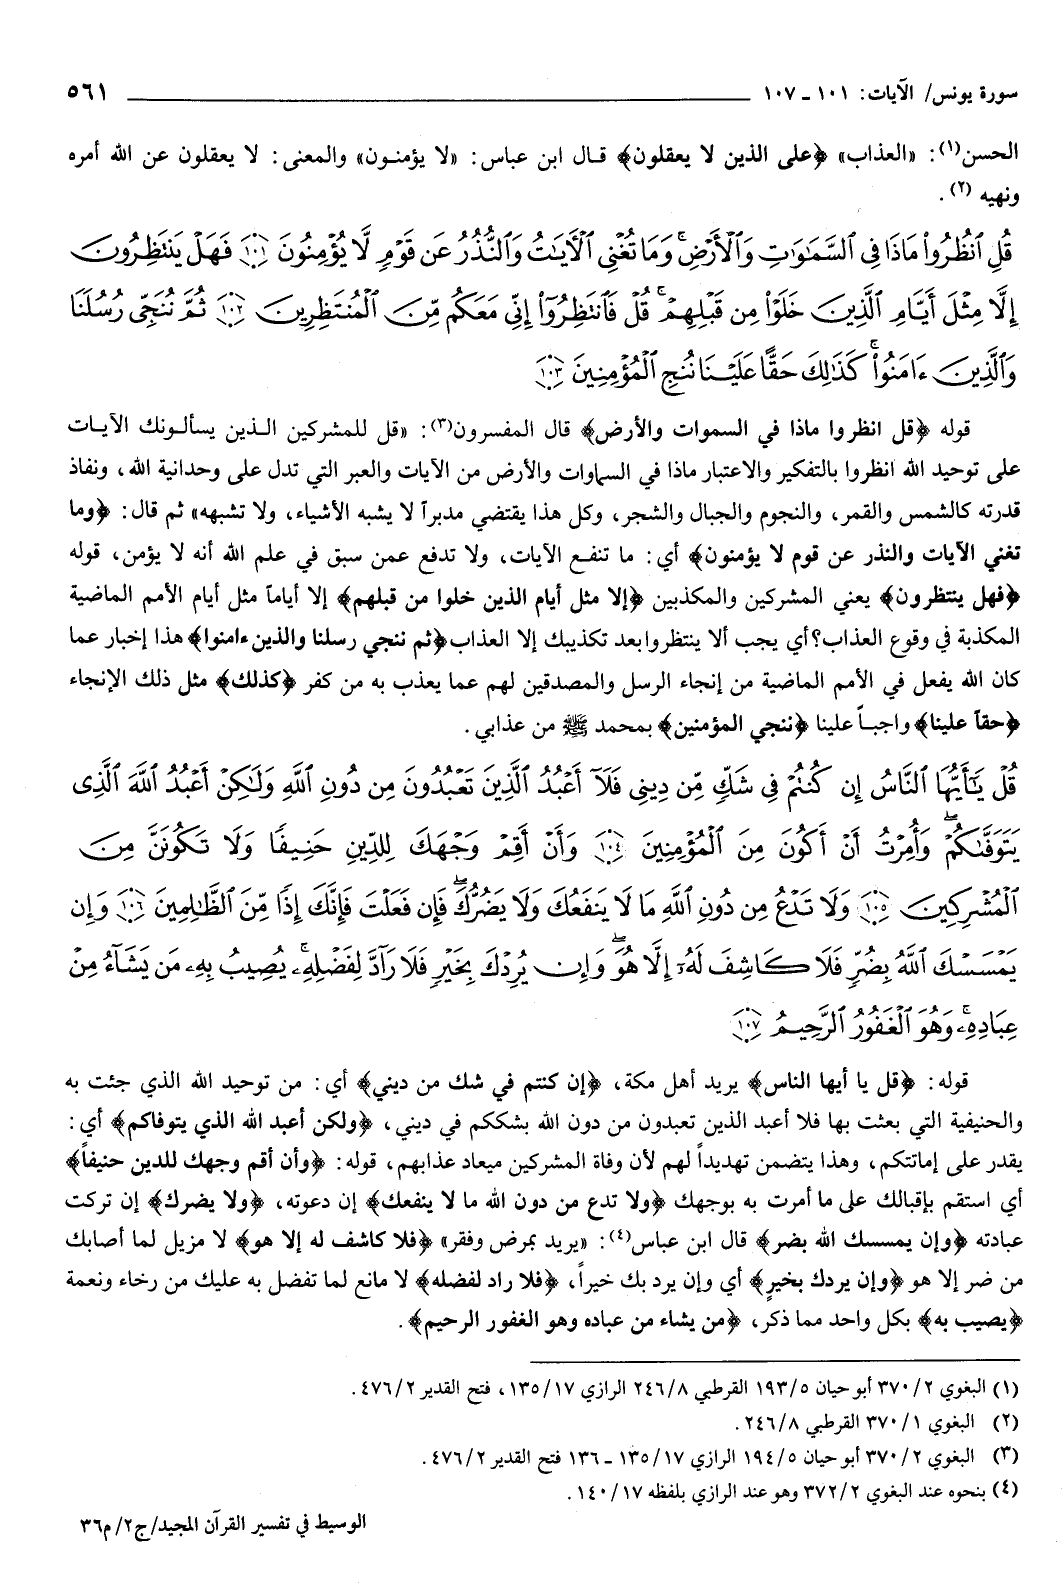 سورة يونس/ الآيات: ١٠١ ـ ١٠٧ ٥٦١
الحسن(١): «العذاب» ﴿على الذين لا يعقلون﴾ قال ابن عباس: «لا يؤمنون» والمعنى: لا يعقلون عن الله أمره
ونهيه (٢).
قُلِ ٱنظُرُوا۟ مَاذَا فِى ٱلسَّمَـٰوَٰتِ وَٱلْأَرْضِ ۚ وَمَا تُغْنِى ٱلْـَٔايَـٰتُ وَٱلنُّذُرُ عَن قَوْمٍ لَّا يُؤْمِنُونَ ١٠١ فَهَلْ يَنتَظِرُونَ
إِلَّا مِثْلَ أَيَّامِ ٱلَّذِينَ خَلَوْا۟ مِن قَبْلِهِمْ ۚ قُلْ فَٱنتَظِرُوٓا۟ إِنِّى مَعَكُم مِّنَ ٱلْمُنتَظِرِينَ ١٠٢ ثُمَّ نُنَجِّى رُسُلَنَا
وَٱلَّذِينَ ءَامَنُوا۟ ۚ كَذَٰلِكَ حَقًّا عَلَيْنَا نُنجِ ٱلْمُؤْمِنِينَ ١٠٣
قوله ﴿قل انظروا ماذا في السموات والأرض﴾ قال المفسرون(٣): «قل للمشركين الذين يسألونك الآيات
على توحيد الله انظروا بالتفكير والاعتبار ماذا في السماوات والأرض من الآيات والعبر التي تدل على وحدانية الله، ونفاذ
قدرته كالشمس والقمر، والنجوم والجبال والشجر، وكل هذا يقتضي مدبراً لا يشبه الأشياء، ولا تشبهه» ثم قال: ﴿وما
تغني الآيات والنذر عن قوم لا يؤمنون﴾ أي: ما تنفع الآيات، ولا تدفع عمن سبق في علم الله أنه لا يؤمن، قوله
﴿فهل ينتظرون﴾ يعني المشركين والمكذبين ﴿إلا مثل أيام الذين خلوا من قبلهم﴾ إلا أياماً مثل أيام الأمم الماضية
المكذبة في وقوع العذاب؟ أي يجب ألا ينتظروا بعد تكذيبك إلا العذاب ﴿ثم ننجي رسلنا والذين ءامنوا﴾ هذا إخبار عما
كان الله يفعل في الأمم الماضية من إنجاء الرسل والمصدقين لهم عما يعذب به من كفر ﴿كذلك﴾ مثل ذلك الإنجاء
﴿حقاً علينا﴾ واجباً علينا ﴿ننجي المؤمنين﴾ بمحمد ﷺ من عذابي.
قُلْ يَـٰٓأَيُّهَا ٱلنَّاسُ إِن كُنتُمْ فِى شَكٍّ مِّن دِينِى فَلَآ أَعْبُدُ ٱلَّذِينَ تَعْبُدُونَ مِن دُونِ ٱللَّهِ وَلَـٰكِنْ أَعْبُدُ ٱللَّهَ ٱلَّذِى
يَتَوَفَّىٰكُمْ ۖ وَأُمِرْتُ أَنْ أَكُونَ مِنَ ٱلْمُؤْمِنِينَ ١٠٤ وَأَنْ أَقِمْ وَجْهَكَ لِلدِّينِ حَنِيفًا وَلَا تَكُونَنَّ مِنَ
ٱلْمُشْرِكِينَ ١٠٥ وَلَا تَدْعُ مِن دُونِ ٱللَّهِ مَا لَا يَنفَعُكَ وَلَا يَضُرُّكَ ۖ فَإِن فَعَلْتَ فَإِنَّكَ إِذًا مِّنَ ٱلظَّـٰلِمِينَ ١٠٦ وَإِن
يَمْسَسْكَ ٱللَّهُ بِضُرٍّ فَلَا كَاشِفَ لَهُۥٓ إِلَّا هُوَ ۖ وَإِن يُرِدْكَ بِخَيْرٍ فَلَا رَآدَّ لِفَضْلِهِۦ ۚ يُصِيبُ بِهِۦ مَن يَشَآءُ مِنْ
عِبَادِهِۦ ۚ وَهُوَ ٱلْغَفُورُ ٱلرَّحِيمُ ١٠٧
قوله: ﴿قل يا أيها الناس﴾ يريد أهل مكة، ﴿إن كنتم في شك من ديني﴾ أي: من توحيد الله الذي جئت به
والحنيفية التي بعثت بها فلا أعبد الذين تعبدون من دون الله بشككم في ديني، ﴿ولكن أعبد الله الذي يتوفاكم﴾ أي:
يقدر على إماتتكم، وهذا يتضمن تهديداً لهم لأن وفاة المشركين ميعاد عذابهم، قوله: ﴿وأن أقم وجهك للدين حنيفاً﴾
أي استقم بإقبالك على ما أمرت به بوجهك ﴿ولا تدع من دون الله ما لا ينفعك﴾ إن دعوته، ﴿ولا يضرك﴾ إن تركت
عبادته ﴿وإن يمسسك الله بضر﴾ قال ابن عباس(٤): «يريد بمرض وفقر» ﴿فلا كاشف له إلا هو﴾ لا مزيل لما أصابك
من ضر إلا هو ﴿وإن يردك بخيرٍ﴾ أي وإن يرد بك خيراً، ﴿فلا راد لفضله﴾ لا مانع لما تفضل به عليك من رخاء ونعمة
﴿يصيب به﴾ بكل واحد مما ذكر، ﴿من يشاء من عباده وهو الغفور الرحيم﴾.
(١) البغوي ٣٧٠/٢ أبو حيان ١٩٣/٥ القرطبي ٢٤٦/٨ الرازي ١٣٥/١٧، فتح القدير ٤٧٦/٢.
(٢) البغوي ٣٧٠/١ القرطبي ٢٤٦/٨.
(٣) البغوي ٣٧٠/٢ أبو حيان ١٩٤/٥ الرازي ١٣٥/١٧ ـ ١٣٦ فتح القدير ٤٧٦/٢.
(٤) بنحوه عند البغوي ٣٧٢/٢ وهو عند الرازي بلفظه ١٤٠/١٧.
الوسيط في تفسير القرآن المجيد/ج٢/م٣٦